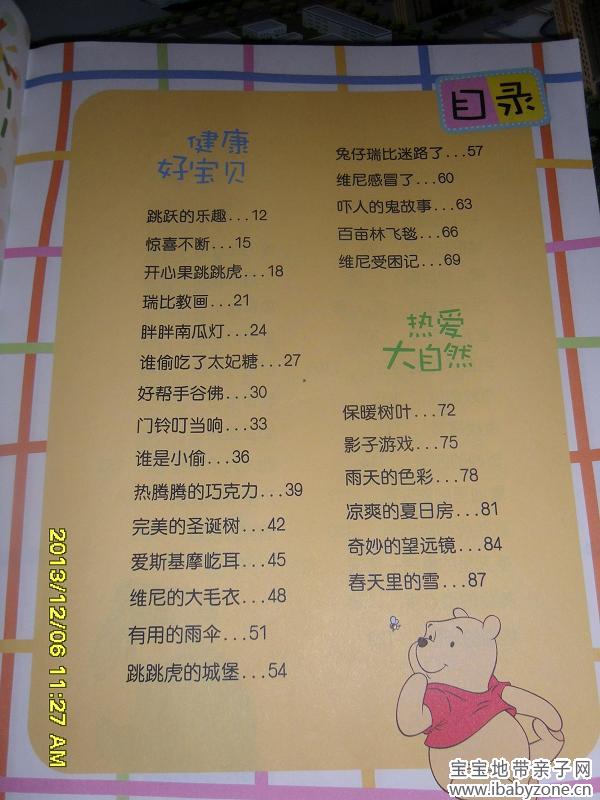 目录
健康
好宝贝
跳跃的乐趣...12
惊喜不断...15
开心果跳跳虎...18
瑞比教画...21
胖胖南瓜灯...24
谁偷吃了太妃糖...27
好帮手谷佛...30
门铃叮当响...33
谁是小偷...36
热腾腾的巧克力...39
完美的圣诞树...42
爱斯基摩屹耳...45
维尼的大毛衣...48
有用的雨伞...51
跳跳虎的城堡...54
兔仔瑞比迷路了...57
维尼感冒了...60
吓人的鬼故事...63
百亩林飞毯...66
维尼受困记...69
热爱
大自然
保暖树叶...72
影子游戏...75
雨天的色彩...78
凉爽的夏日房...81
奇妙的望远镜...84
春天里的雪...87
2013/12/06 11:27 AM
宝宝地带亲子网
www.ibabyzone.cn